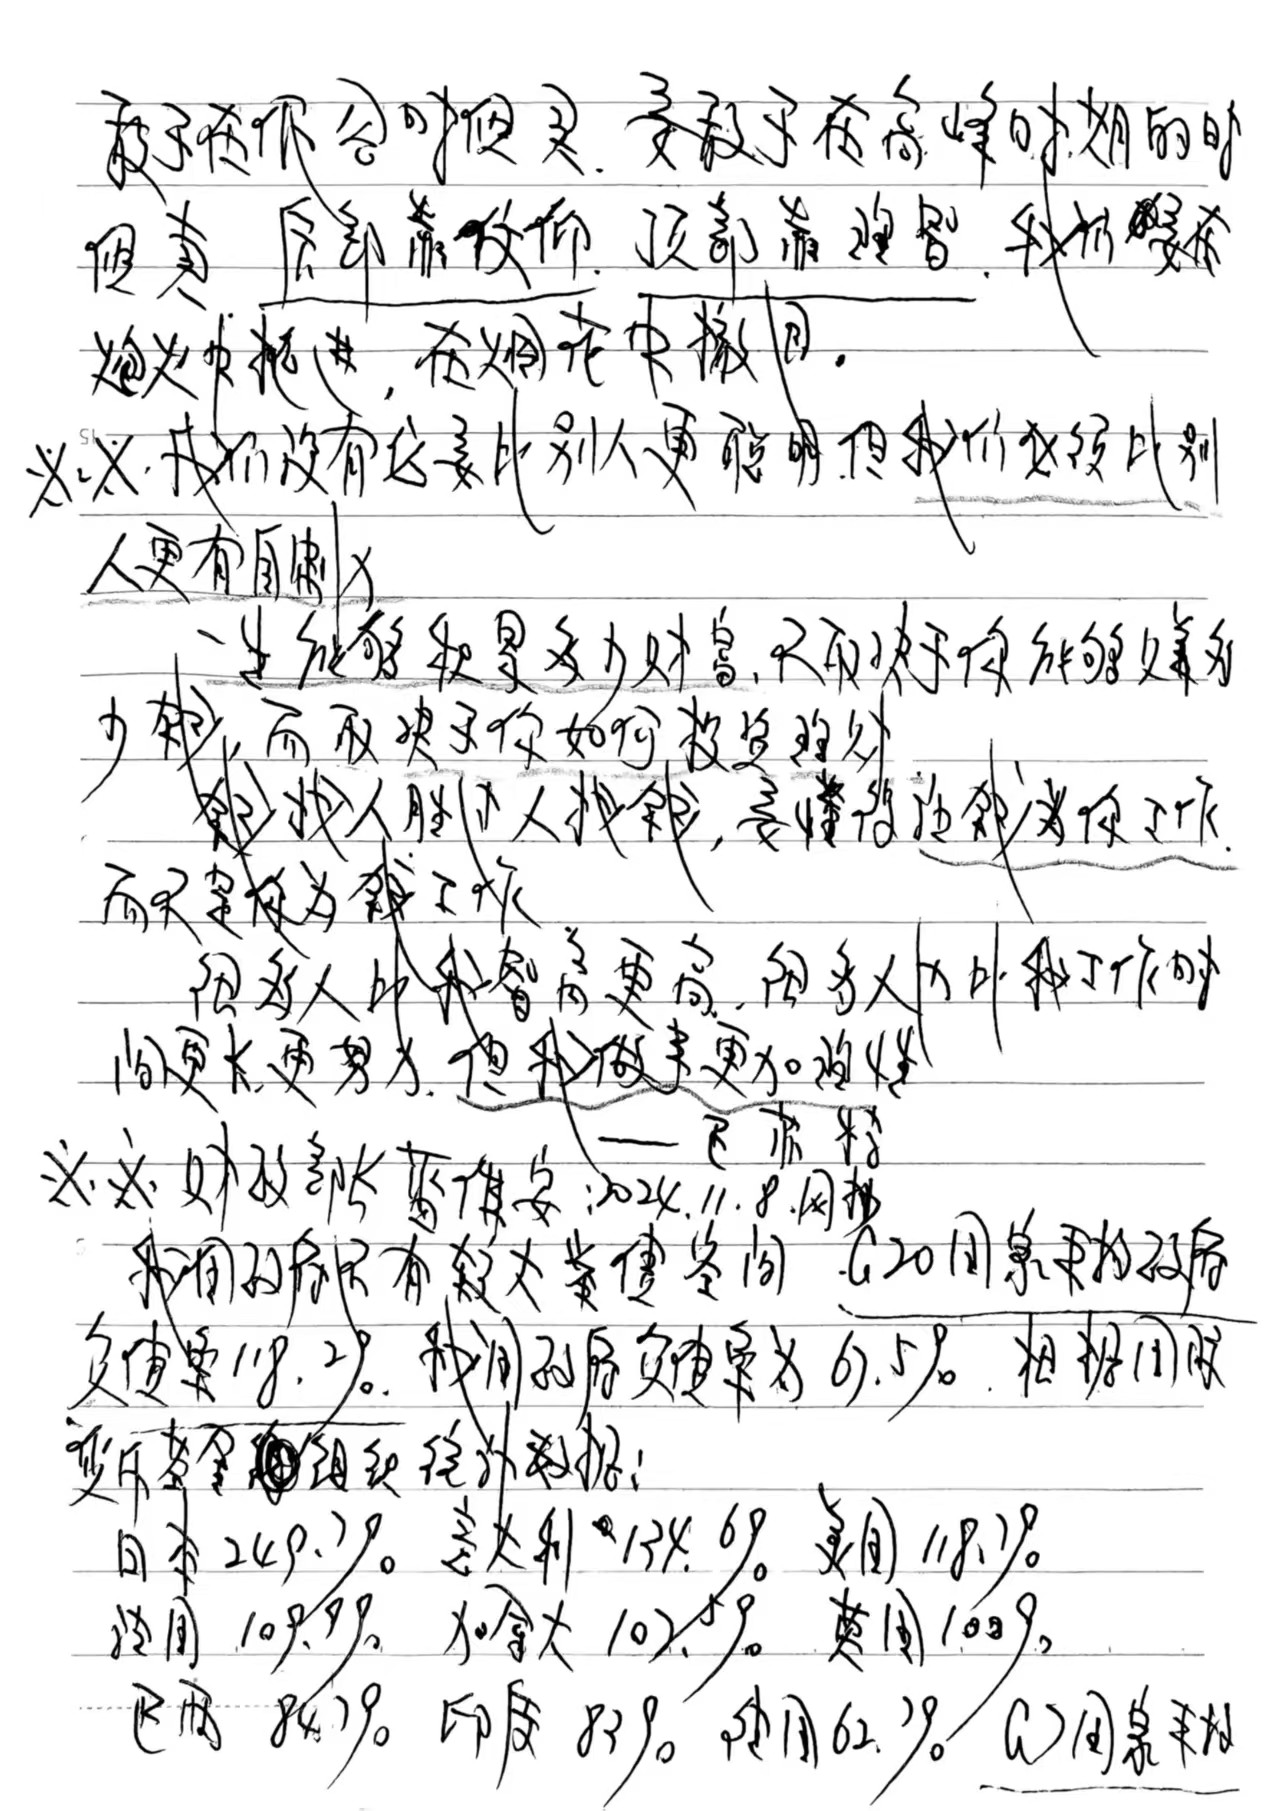 敢于在低谷时便买.要敢于在高峰时期的时
便卖 底部靠信仰.顶部靠理智.我们要在
炮火中挺进,在烟花中撤回.
※.※.我们没有必要比别人更聪明.但我们必须比别
人更有自制力
一生能够积累多少财富,不取决于你能够赚多
少钱,而取决于你如何投资理财
钱找人胜过人找钱,要懂得让钱为你工作.
而不是你为钱工作
很多人比我智商更高.很多人也比我工作时
间更长.更努力.但我做事更加理性
——巴菲特
※.※.财政部长蓝佛安:2024.11.8.网推
我国政府还有较大举债空间 G20国家平均政府
负债率118.2%.我国政府负债率为67.5%.根据国际
货币基金组织统计数据:
日本249.7% 意大利134.6% 美国118.7%
法国109.9% 加拿大107.5% 英国100%
巴西84.7% 印度83% 德国62.7% G7国家平均